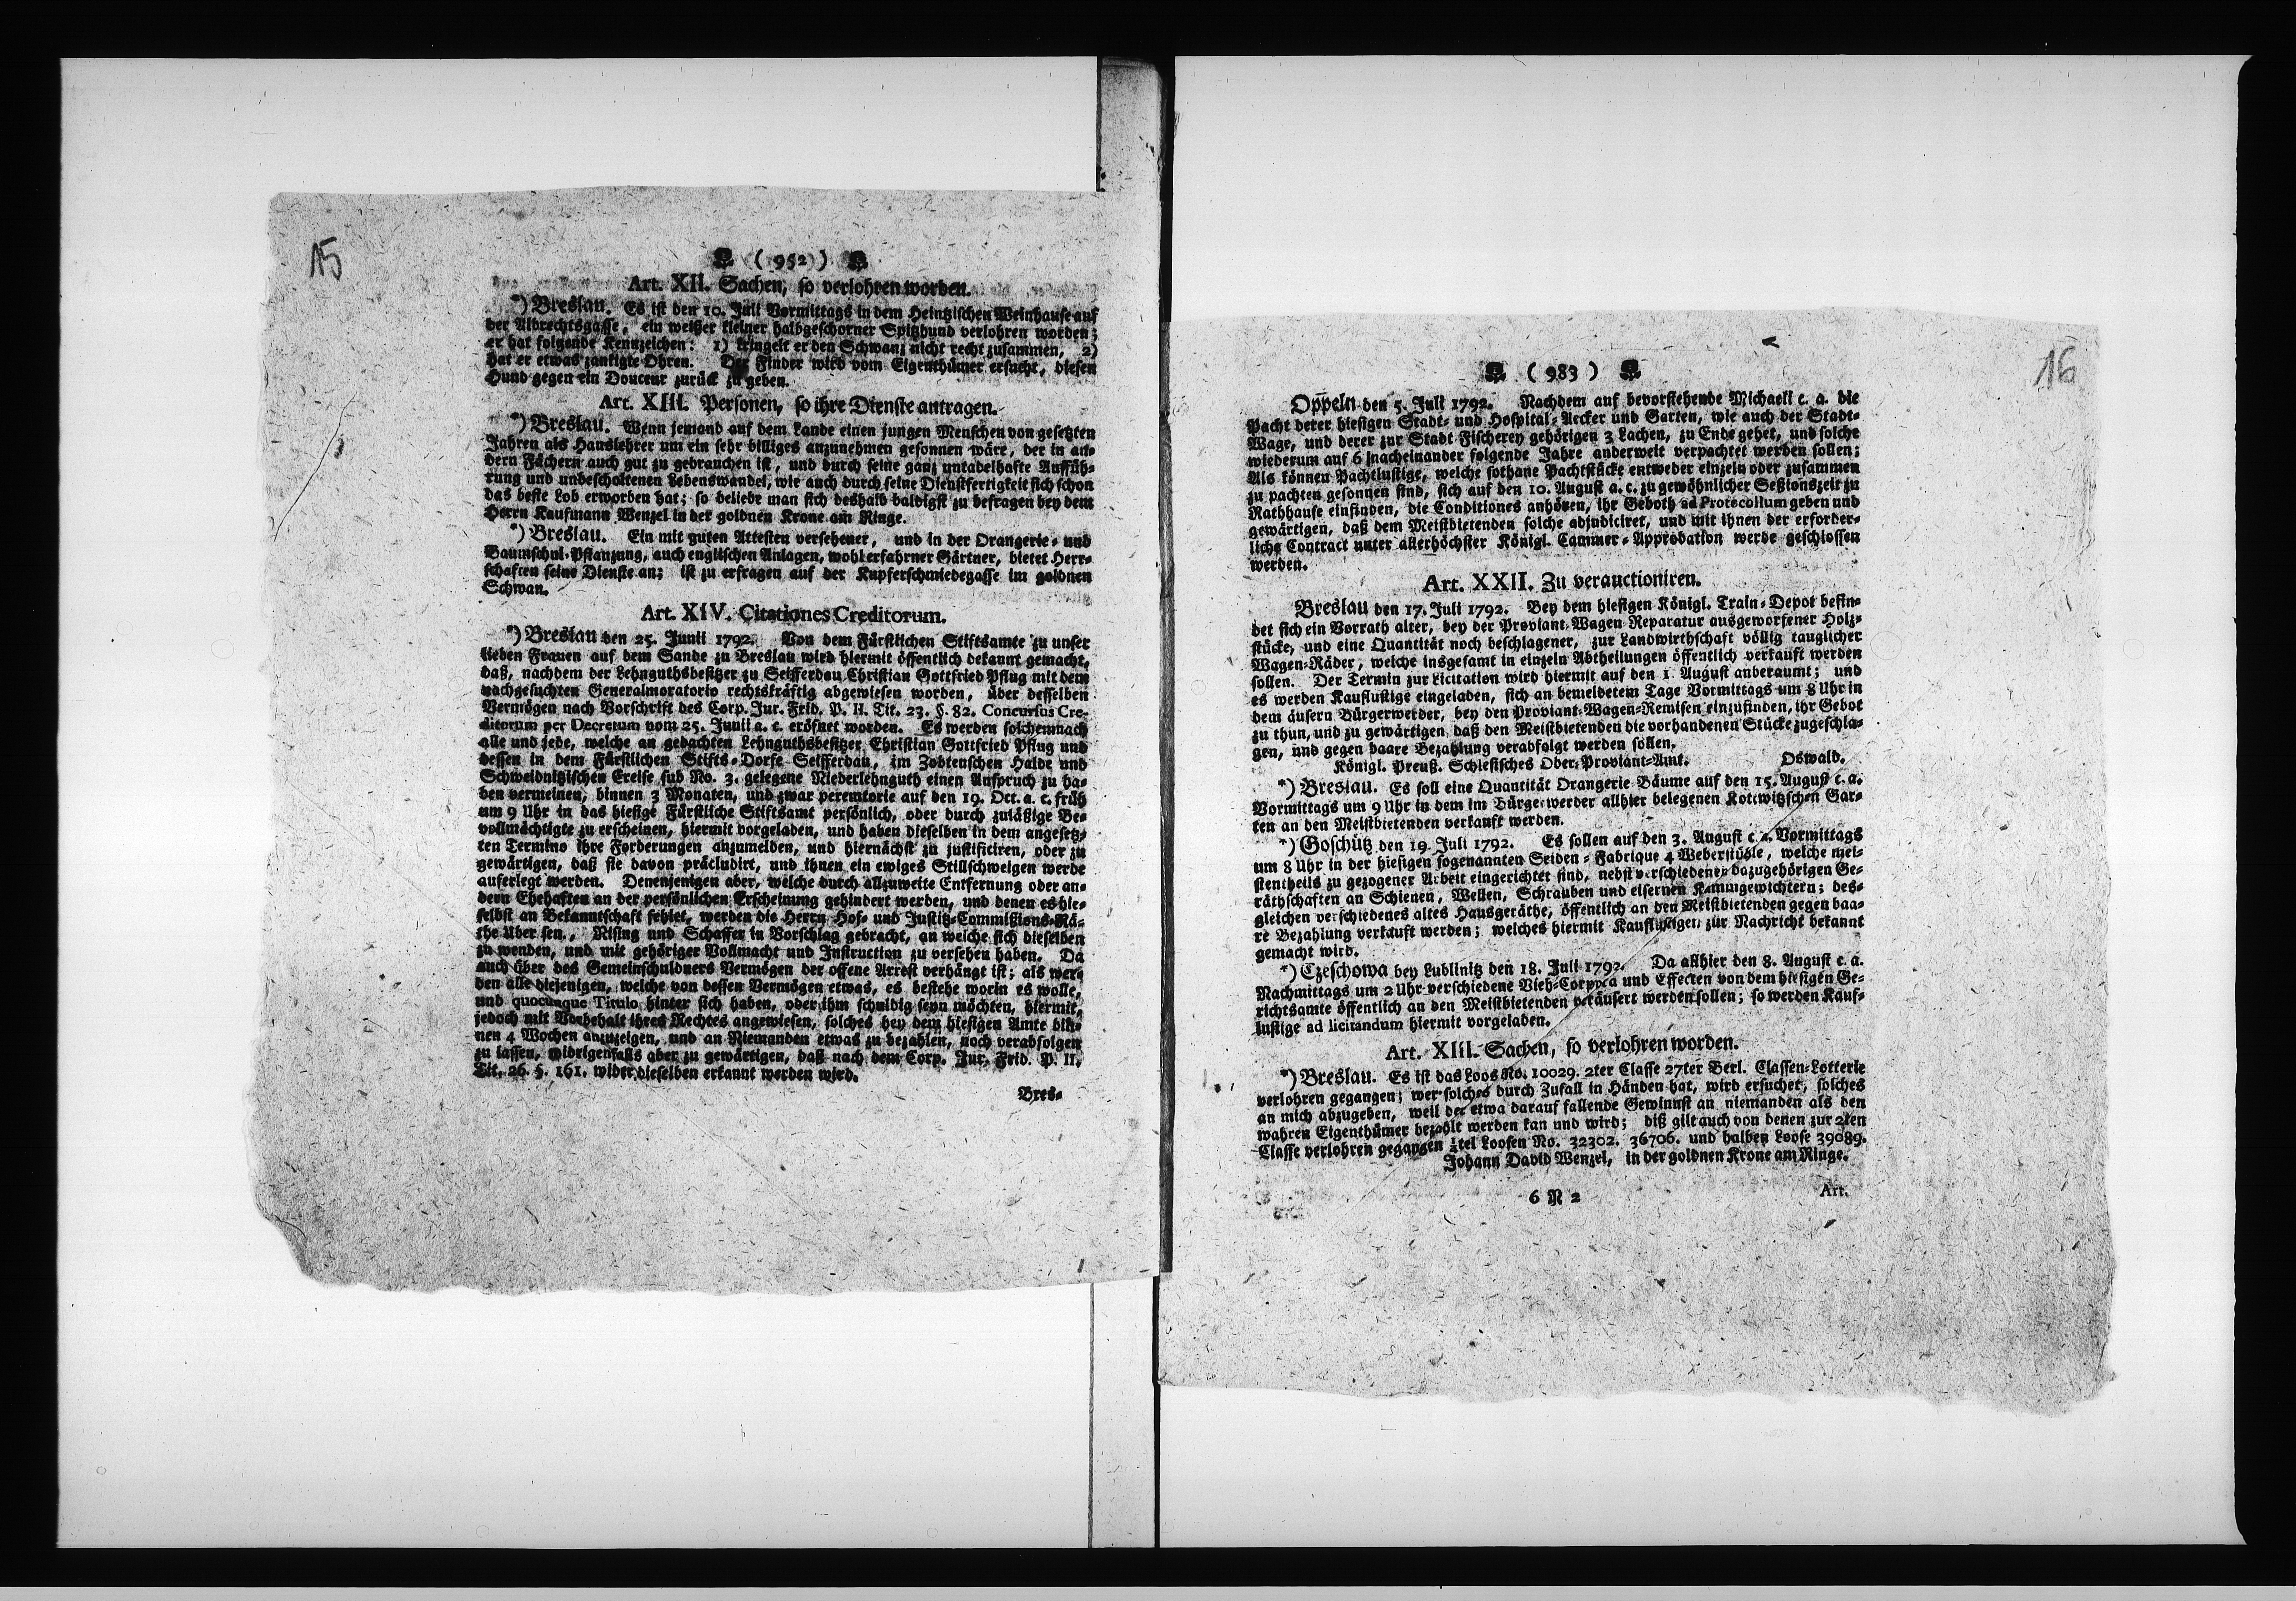 15
( 952 )
Art. XII. Sachen, so verlohren worden.
*) Breslau. Es ist den 10. Juli Vormittags in dem Heintzischen Weinhause auf
der Albrechtsgasse, ein weißer kleiner halbgeschorner Spitzhund verlohren worden;
er hat folgende Kennzeichen: 1) kringelt er den Schwanz nicht recht zusammen, 2)
hat er etwas zankigte Ohren. Der Finder wird vom Eigenthümer ersucht, diesen
Hund gegen ein Douceur zurück zu geben.
Art. XIII. Personen, so ihre Dienste antragen.
*) Breslau. Wenn jemand auf dem Lande einen jungen Menschen von gesetzten
Jahren als Hauslehrer um ein sehr billiges anzunehmen gesonnen wäre, der in an-
dern Fächern auch gut zu gebrauchen ist, und durch seine ganz untadelhafte Auffüh-
rung und unbescholtenen Lebenswandel, wie auch durch seine Dienstfertigkeit sich schon
das beste Lob erworben hat; so beliebe man sich deshalb baldigst zu befragen bey dem
Herrn Kaufmann Wenzel in der goldnen Krone am Ringe.
*) Breslau. Ein mit guten Attesten versehener, und in der Orangerie- und
Baumschul-Pflanzung, auch englischen Anlagen, wohl erfahrner Gärtner, bietet Herr-
schaften seine Dienste an; ist zu erfragen auf der Kupferschmiedegasse im goldnen
Schwan.
Art. XIV. Citationes Creditorum.
*) Breslau den 25. Junii 1792. Von dem Fürstlichen Stiftsamte zu unser
lieben Frauen auf dem Sande zu Breslau wird hiermit öffentlich bekannt gemacht,
daß, nachdem der Lehnguthsbesitzer zu Seifferdau Christian Gottfried Pflug mit dem
nachgesuchten Generalmoratorio rechtskräftig abgewiesen worden, über desselben
Vermögen nach Vorschrift des Corp. Jur. Frid. P. II. Tit. 23. §. 82. Concursus Cre-
ditorum per Decretum vom 25. Junii a. c. eröfnet worden. Es werden solchemnach
alle und jede, welche an gedachten Lehnguthsbesitzer Christian Gottfried Pflug und
dessen in dem Fürstlichen Stifts-Dorfe Seifferdau, im Zobtenschen Halde und
Schweidnitzischen Creise sub No. 3. gelegene Niederlehnguth einen Anspruch zu ha-
ben vermeinen, binnen 3 Monaten, und zwar peremtorie auf den 19. Oct. a. c. früh
um 9 Uhr in das hiesige Fürstliche Stiftsamt persönlich, oder durch zuläßige Be-
vollmächtigte zu erscheinen, hiermit vorgeladen, und haben dieselben in dem angesetz-
ten Termino ihre Forderungen anzumelden, und hiernächst zu justificiren, oder zu
gewärtigen, daß sie davon präcludirt, und ihnen ein ewiges Stillschweigen werde
auferlegt werden. Denenjenigen aber, welche durch allzuweite Entfernung oder an-
dern Ehehaften an der persönlichen Erscheinung gehindert werden, und denen es hie-
selbst an Bekanntschaft fehlet, werden die Herrn Hof- und Justitz-Commißions-Rä-
the Uber sen., Rising und Schaffer in Vorschlag gebracht, an welche sich dieselben
zu wenden, und mit gehöriger Vollmacht und Instruction zu versehen haben. Da
auch über des Gemeinschuldners Vermögen der offene Arrest verhängt ist; als wer-
den alle diejenigen, welche von dessen Vermögen etwas, es bestehe worin es wolle,
und quocunque Titulo hinter sich haben, oder ihm schuldig seyn möchten, hiermit,
jedoch mit Vorbehalt ihres Rechtes angewiesen, solches bey dem hiesigen Amte bin-
nen 4 Wochen anzuzeigen, und an Niemanden etwas zu bezahlen, noch verabfolgen
zu lassen, widrigenfalls aber zu gewärtigen, daß nach dem Corp. Jur. Frid. P. II.
Tit. 26. §. 161. wider dieselben erkannt werden wird.
Bres-
16
( 983 )
Oppeln den 5. Juli 1792. Nachdem auf bevorstehende Michaeli c. a. die
Pacht derer hiesigen Stadt- und Hospital-Aecker und Garten, wie auch der Stadt-
Wage, und derer zur Stadt Fischerey gehörigen 3 Lachen, zu Ende gehet, und solche
wiederum auf 6 nacheinander folgende Jahre anderweit verpachtet werden sollen;
Als können Pachtlustige, welche sothane Pachtstücke entweder einzeln oder zusammen
zu pachten gesonnen sind, sich auf den 10. August a. c. zu gewöhnlicher Seßionszeit zu
Rathhause einfinden, die Conditiones anhören, ihr Geboth ad Protocollum geben und
gewärtigen, daß dem Meistbietenden solche adjudiciret, und mit ihnen der erforder-
liche Contract unter allerhöchster Königl. Cammer-Approbation werde geschlossen
werden.
Art. XXII. Zu verauctioniren.
Breslau den 17. Juli 1792. Bey dem hiesigen Königl. Train-Depot befin-
det sich ein Vorrath alter, bey der Proviant Wagen Reparatur ausgeworfener Holz-
stücke, und eine Quantität noch beschlagener, zur Landwirthschaft völlig tauglicher
Wagen-Räder, welche insgesamt in einzeln Abtheilungen öffentlich verkauft werden
sollen. Der Termin zur Licitation wird hiermit auf den 1. August anberaumt; und
es werden Kauflustige eingeladen, sich an bemeldetem Tage Vormittags um 8 Uhr in
dem äusern Bürgerwerder, bey den Proviant-Wagen-Remisen einzufinden, ihr Gebot
zu thun, und zu gewärtigen, daß den Meistbietenden die vorhandenen Stücke zugeschla-
gen, und gegen baare Bezahlung verabfolgt werden sollen.
Königl. Preuß. Schlesisches Ober-Proviant-Amt. Oswald.
*) Breslau. Es soll eine Quantität Orangerie Bäume auf den 15. August c. a.
Vormittags um 9 Uhr in dem im Bürgerwerder allhier belegenen Kottwitzschen Gar-
ten an den Meistbietenden verkauft werden.
*) Goschütz den 19. Juli 1792. Es sollen auf den 3. August c. a. Vormittags
um 8 Uhr in der hiesigen sogenannten Seiden-Fabrique 4 Weberstühle, welche mei-
stentheils zu gezogener Arbeit eingerichtet sind, nebst verschiedenen dazugehörigen Ge-
räthschaften an Schienen, Wellen, Schrauben und eisernen Kammgewichtern; des-
gleichen verschiedenes altes Hausgeräthe, öffentlich an den Meistbietenden gegen baa-
re Bezahlung verkauft werden; welches hiermit Kauflustigen zur Nachricht bekannt
gemacht wird.
*) Czeschowa bey Lublinitz den 18. Juli 1792. Da allhier den 8. August c. a.
Nachmittags um 2 Uhr verschiedene Vieh-Corpora und Effecten von dem hiesigen Ge-
richtsamte öffentlich an den Meistbietenden veräusert werden sollen; so werden Kauf-
lustige ad licitandum hiermit vorgeladen.
Art. XIII. Sachen, so verlohren worden.
*) Breslau. Es ist das Loos No. 10029. 2ter Classe 27ter Berl. Classen-Lotterie
verlohren gegangen; wer solches durch Zufall in Händen hat, wird ersuchet, solches
an mich abzugeben, weil der etwa darauf fallende Gewinnst an niemanden als den
wahren Eigenthümer bezahlt werden kan und wird; diß gilt auch von denen zur 2ten
Classe verlohren gegangen tel Loosen No. 32302. 36706. und halben Loose 39089.
Johann David Wenzel, in der goldnen Krone am Ringe.
6 N 2
Art.